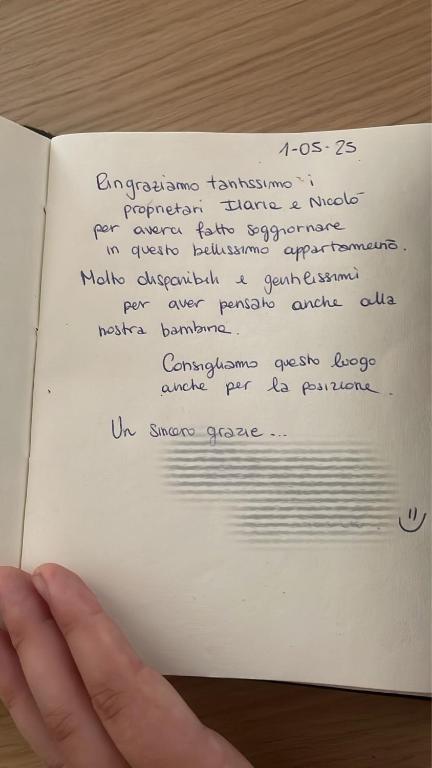 1-05-25
Ringraziamo tantissimo i
proprietari Ilaria e Nicolò
per averci fatto soggiornare
in questo bellissimo appartamento.
Molto disponibili e gentilissimi
per aver pensato anche alla
nostra bambina.
Consigliamo questo luogo
anche per la posizione.
Un sincero grazie...